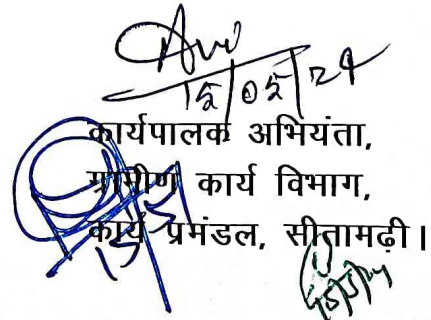 15/05/24
कार्यपालक अभियंता,
ग्रामीण कार्य विभाग,
कार्य प्रमंडल, सीतामढ़ी।